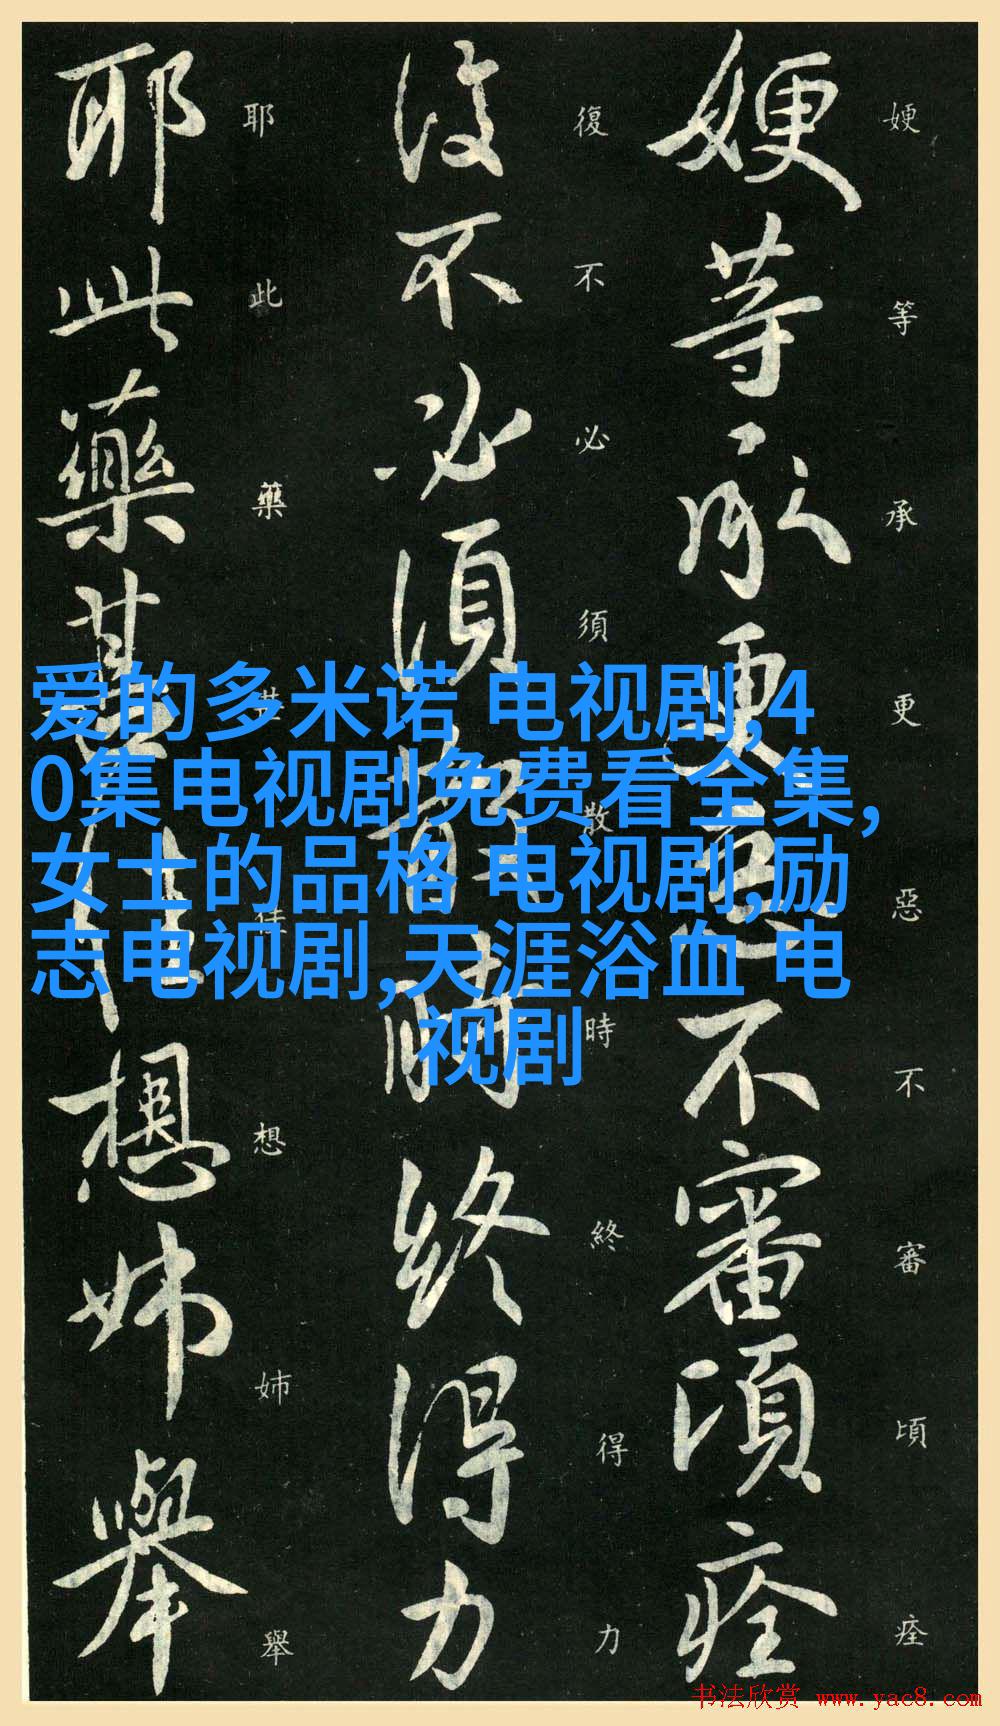 嫂等承更惡不審頃痊
嫂等承更惡不審頃痊
復不必須散時終得力
復不必須散時終得力
耶此藥甚佳想姊舉
耶此藥甚佳想姊舉
爱的多米诺 电视剧,4
0集电视剧免费看全集,
女士的品格 电视剧,励
志电视剧,天涯浴血 电
视剧
书法欣赏 www.yac8.com